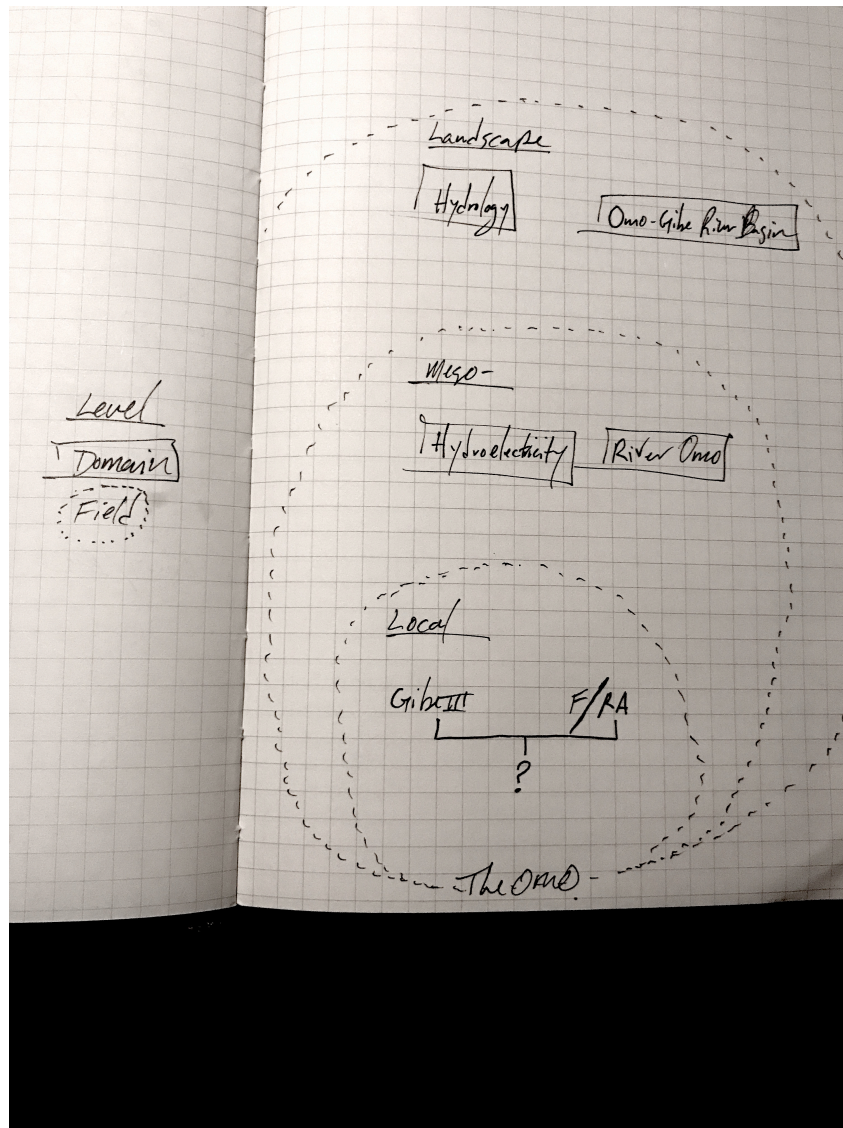 Level
Domain
Field
Landscape
Hydrology
Omo-Gibe River Basin
Meso-
Hydroelectricity
River Omo
Local
Gibe III
F/RA
?
The OMO